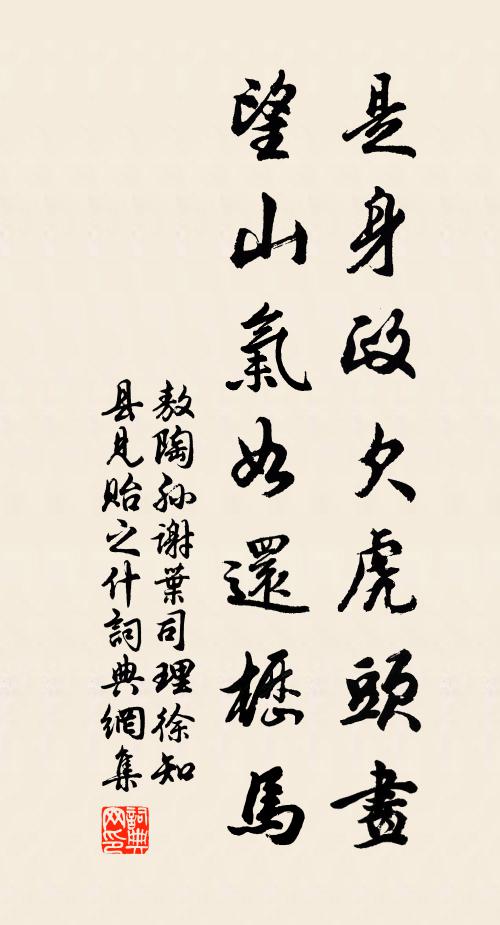 是身政欠虎頭畫
望山氣如還櫪馬
敖陶孙謝葉司理徐知
县見貽之什詞典網集
詞典
网印